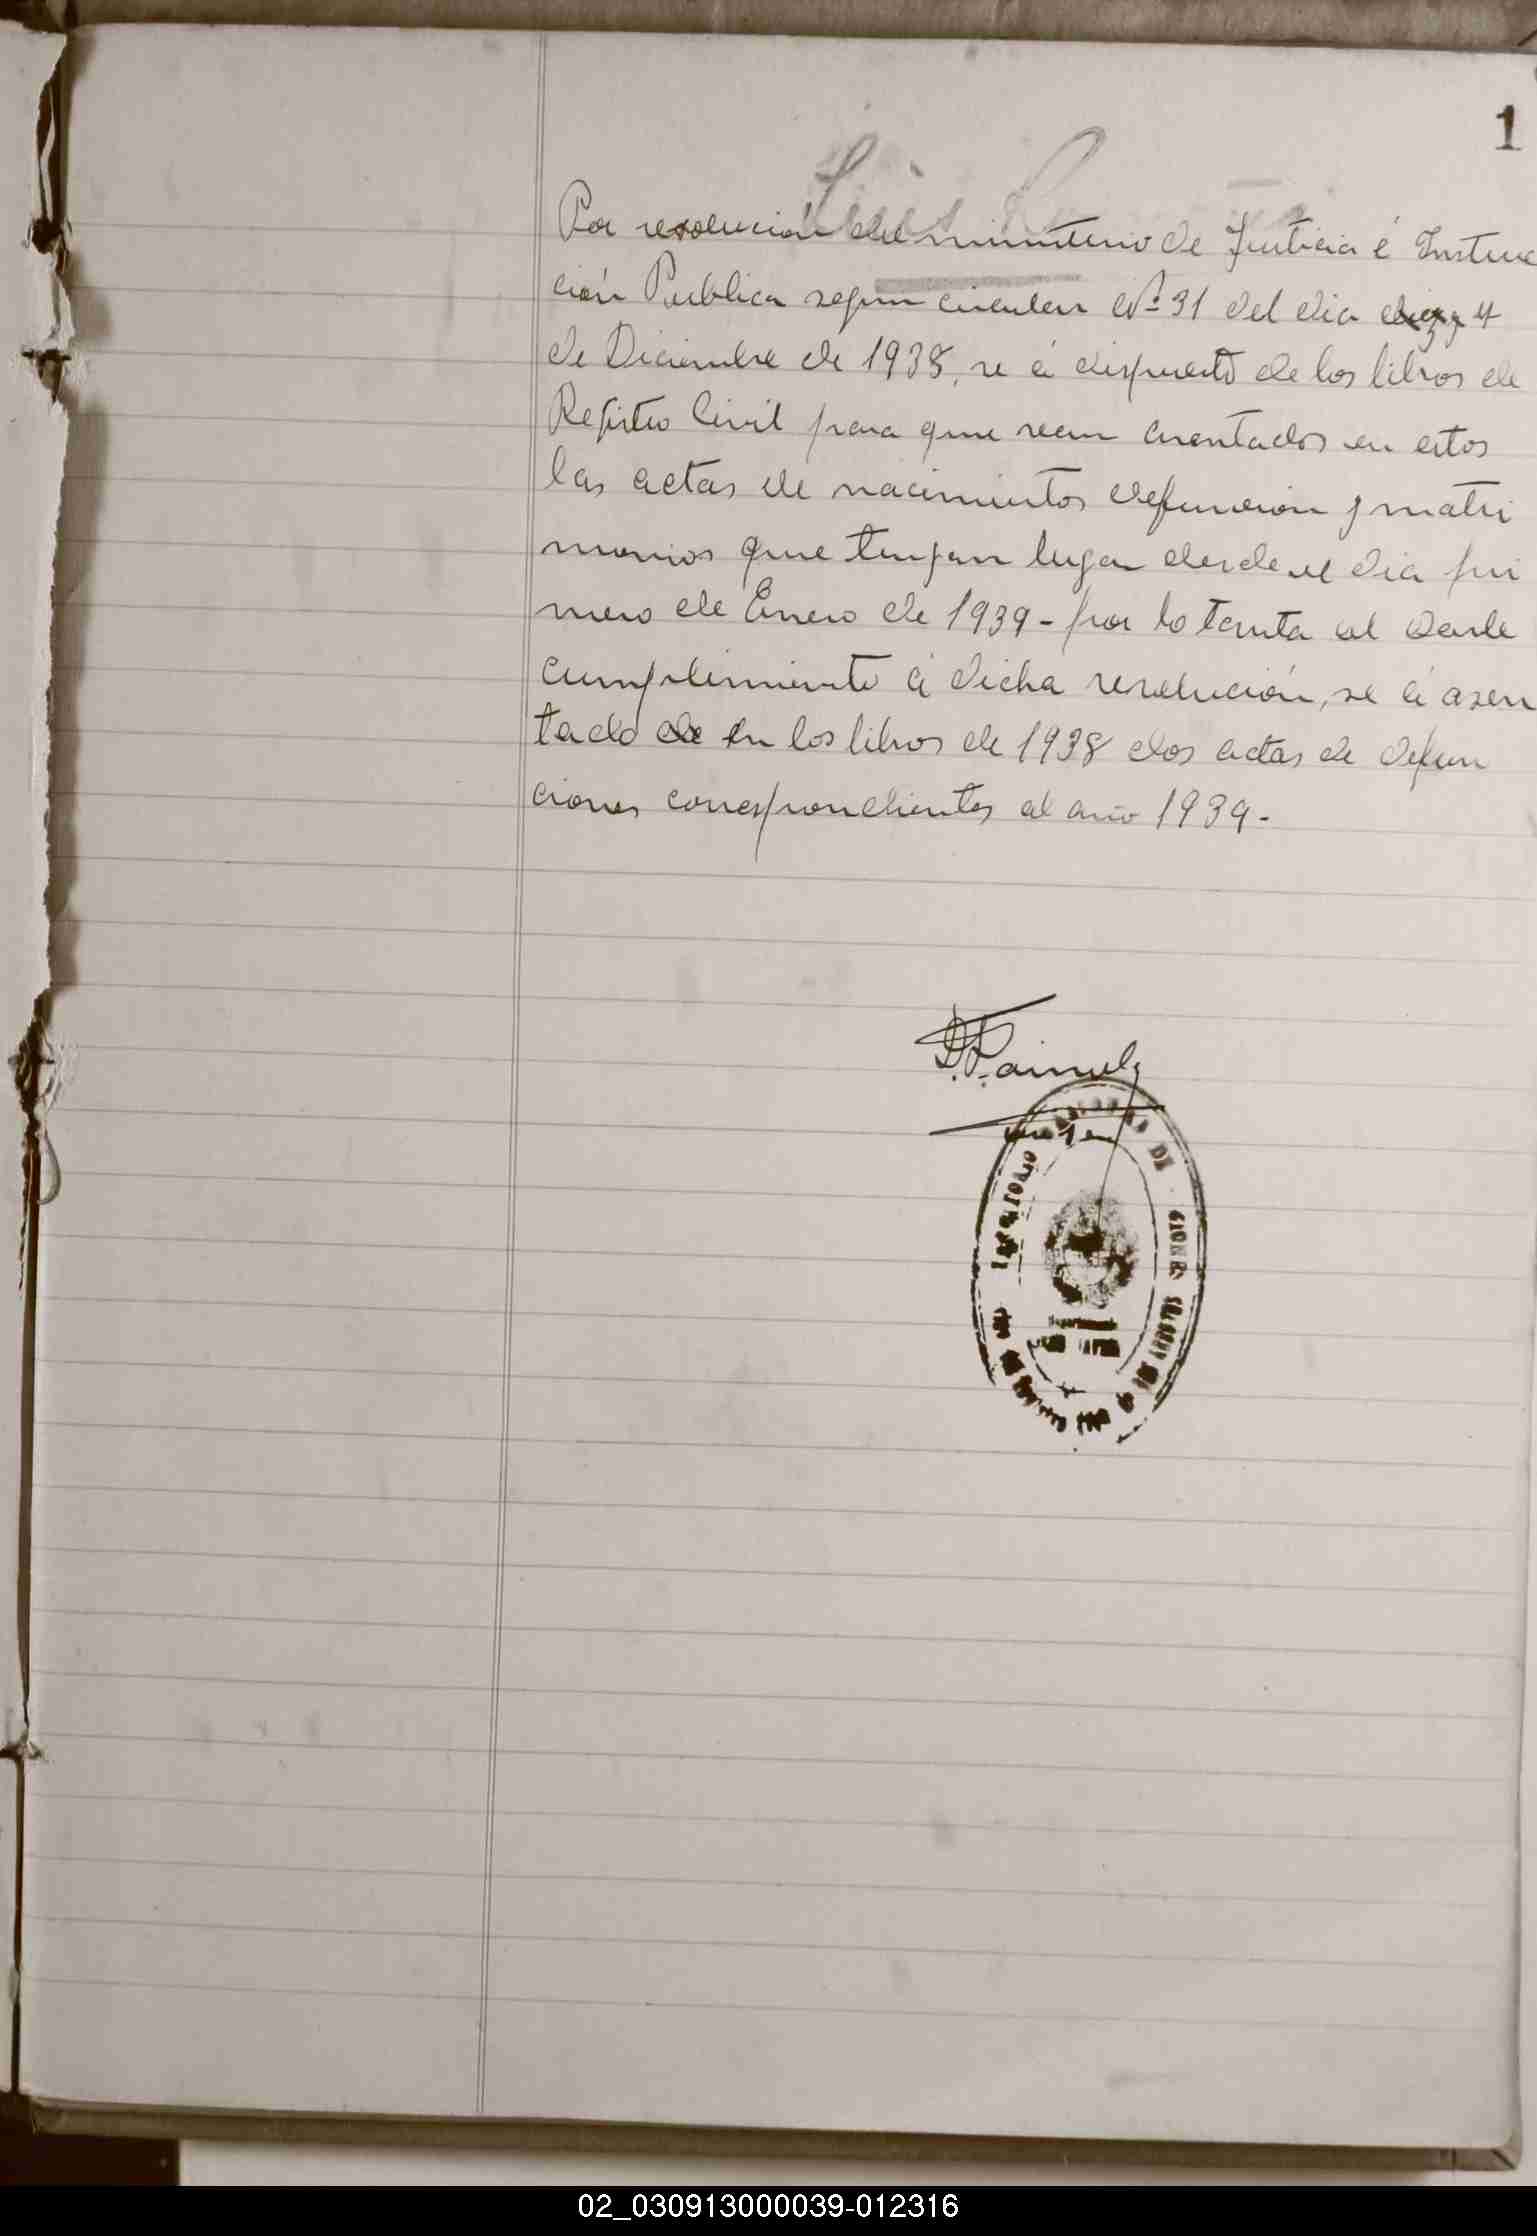 1
Por resolución del ministerio de Justicia é Instruc
ción Publica segun circular Nº 31 del dia 4
de Diciembre de 1938, se á dispuesto de los libros de
Registro Civil para que sean asentados en estos
las actas de nacimientos defuncion y matri
monios que tengan lugar desde el dia pri
mero de Enero de 1939 - por lo tanto al darle
cumplimiento á dicha resolución, se á asen
tado de en los libros de 1938 dos actas de defun
ciones correspondientes al año 1939.-
02_030913000039-012316